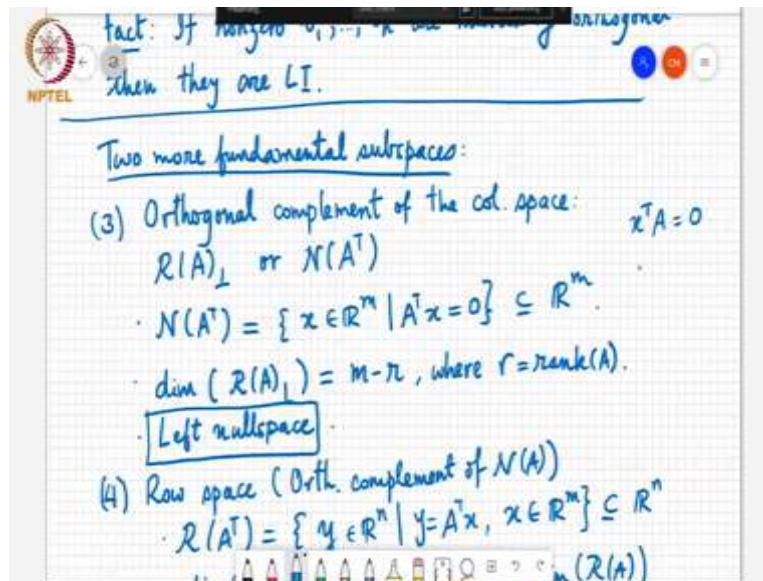 fact: If nonzero
orthogonal
NPTEL
then they are LI.
CH
Two more fundamental subspaces:
(3) Orthogonal complement of the col. space:
xᵀA = 0
R(A)⊥ or N(Aᵀ)
· N(Aᵀ) = { x ∈ ℝᵐ | Aᵀx = 0} ⊆ ℝᵐ.
· dim ( R(A)⊥ ) = m-r, where r = rank(A).
· Left nullspace .
(4) Row space (Orth. complement of N(A))
· R(Aᵀ) = { y ∈ ℝⁿ | y = Aᵀx, x ∈ ℝᵐ} ⊆ ℝⁿ
(R(A))